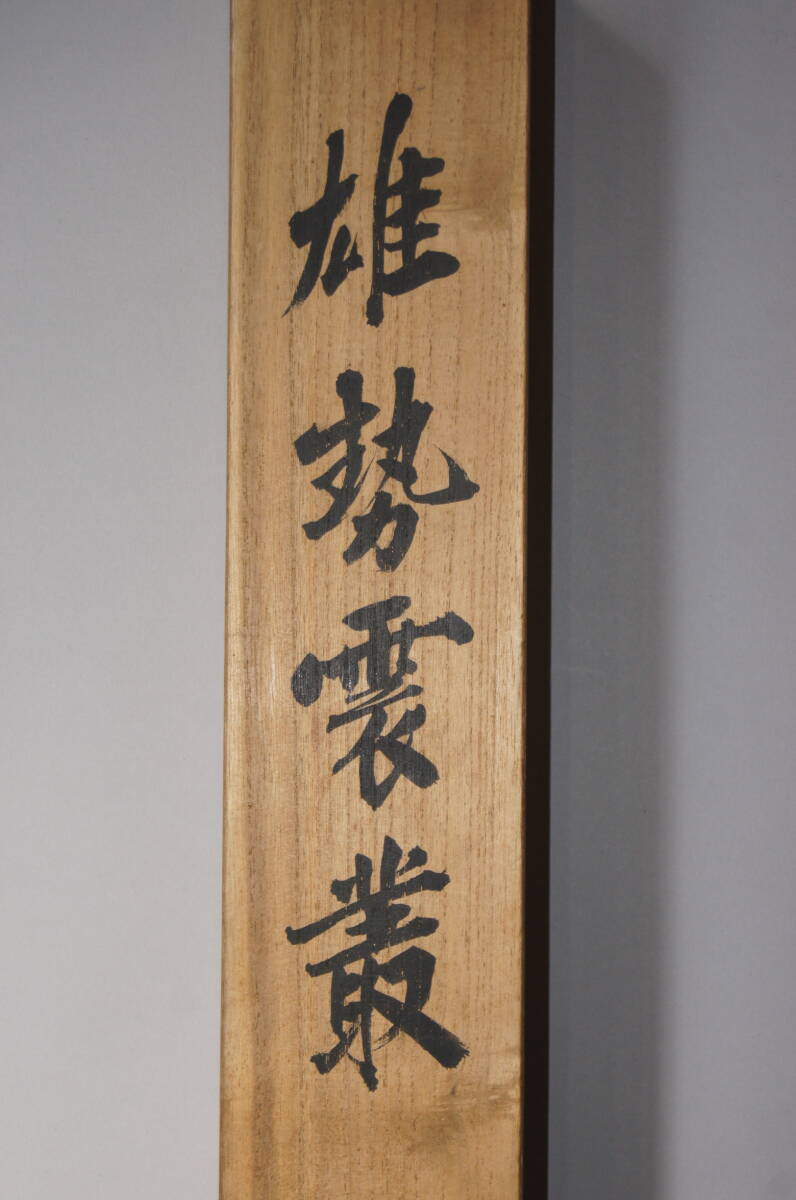 雄勢震叢